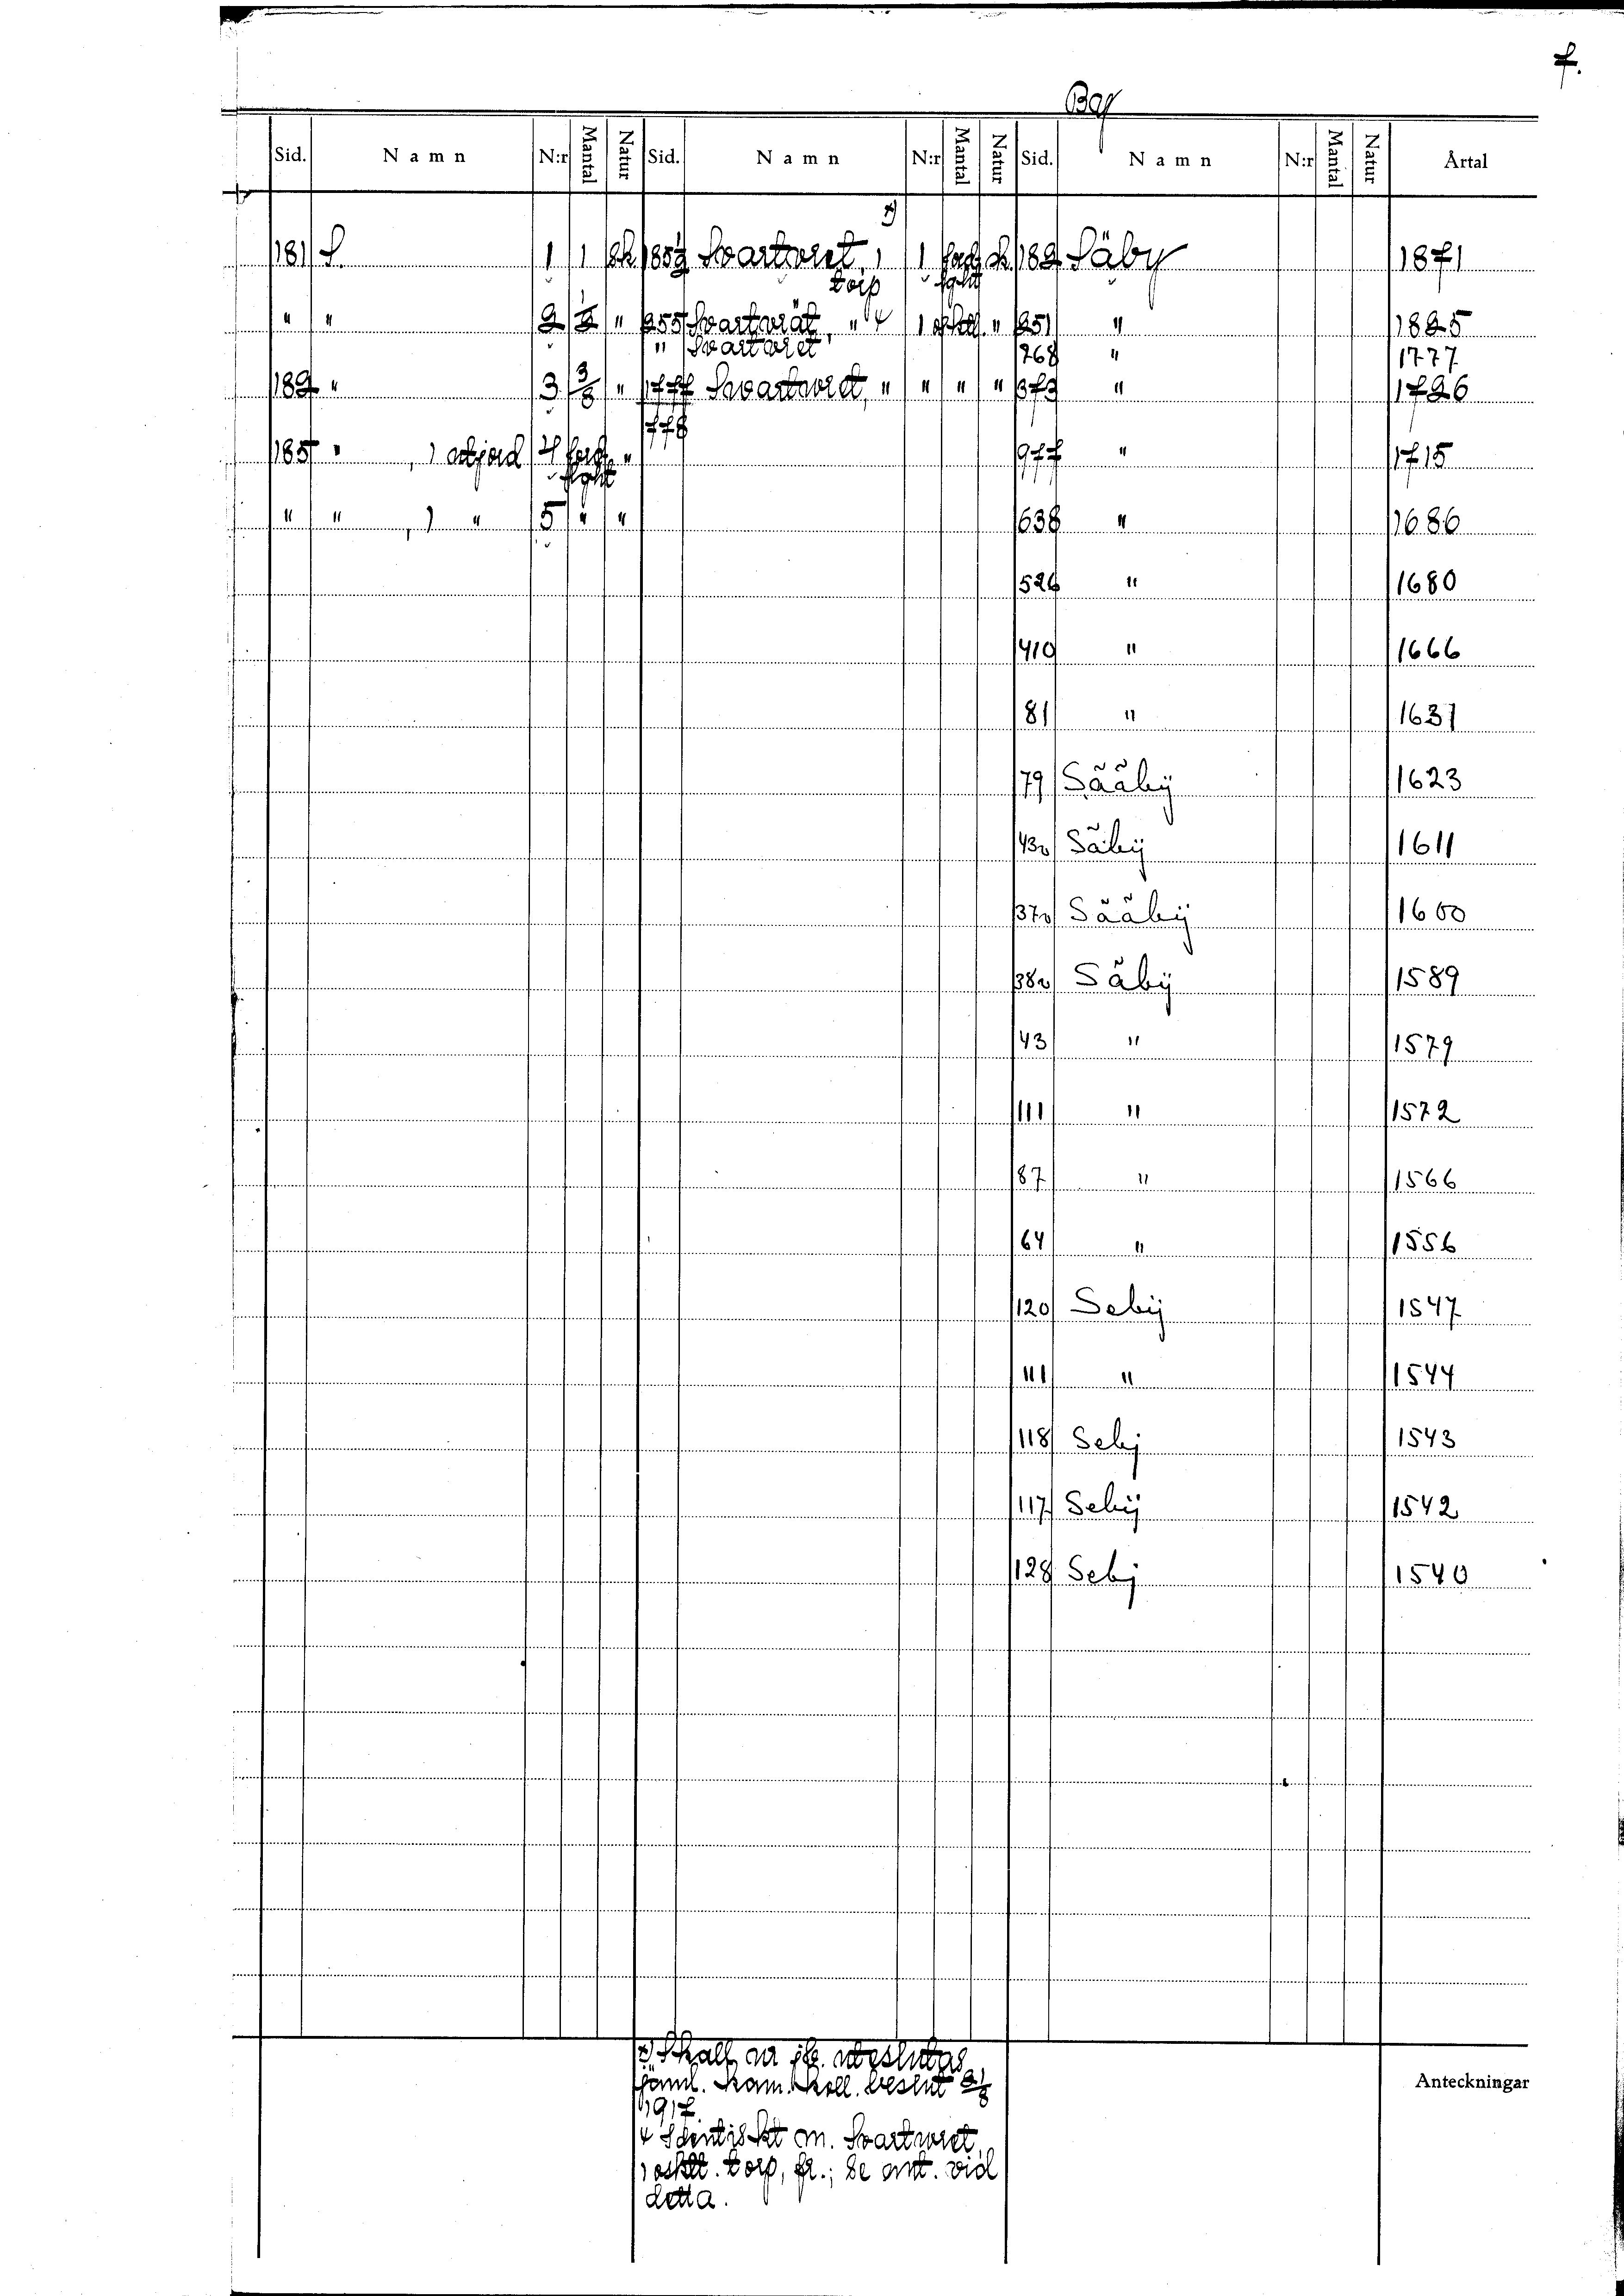 f.
By
Sid. Namn N:r Mantal Natur Sid. Namn N:r Mantal Natur Sid. Namn N:r Mantal Natur Årtal
181 S. 1 1 sk 185½ Svartvret, 1 x) 1 ford. sk. 182 Säby 1871
torp lght
" " 2 ½ " 255 Svartvrät, " 4 1 osktl. " 251 " 1825
" Svartvret 768 " 1777
182 " 3 3/8 " 1777 Svartvret, " " " " 373 " 1726
778
185 " , 1 utjord 4 ford. " 977 " 1715
lght
" " , 1 " 5 " " 638 " 1686
526 " 1680
410 " 1666
81 " 1631
79 Sããbÿ 1623
43v Sãbÿ 1611
37v Sããbÿ 1600
38v Sãbÿ 1589
43 " 1579
111 " 1572
87 " 1566
64 " 1556
120 Sebÿ 1547
111 " 1544
118 Sebj 1543
117 Sebÿ 1542
128 Sebj 1540
x) Skall ur jb. uteslutas
jäml. Kam. Koll. beslut 21/8
1917.
4 Identiskt m. Svartvret,
1 osktl. torp, fr.; se ant. vid
detta.
Anteckningar